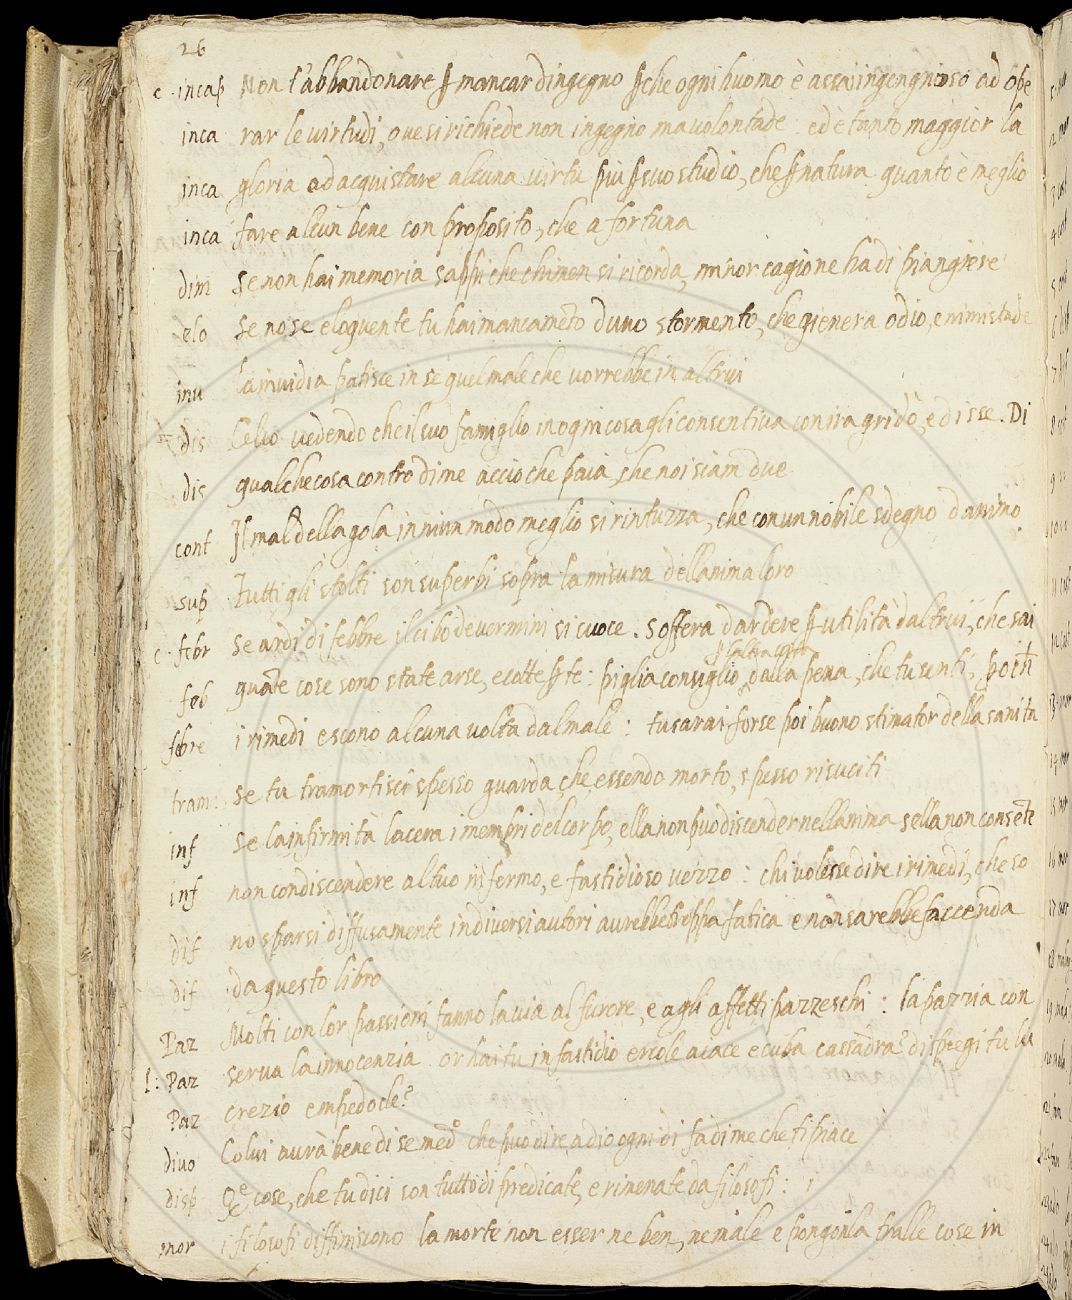 26
c · incap Non t'abbandonare p mancar dingegno p che ogni huomo è assai ingengnioso ad ope
inca rar le virtudi, ove si richiede non ingegno ma volontade: ed è tanto maggior la
inca gloria ad acquistare alcuna virtu più p suo studio, che p natura quanto è meglio
inca fare alcun bene con proposito, che a fortuna
dim Se non hai memoria sappi che chi men si ricorda, minor cagione ha di piangiere
elo Se no se eloquente tu hai mancamēto d'uno stormento, che gienera odio, e nimistade
inv La invidia patisce in se quel male che vorrebbe in altrui
dis Celio vedendo che il suo famiglio in ogni cosa gli consentiva con ira gridò, e disse. Di
dis qualche cosa contro di me accio che paia, che noi siam due
cont Il mal della gola in niun modo meglio si rintuzza, che con un nobile sdegno d'animo
sup Tutti gli stolti son superbi sopra la misura dell anima loro
c · febr Se ardi di febbre il cibo de vermini si cuoce. Soffera d'ardere p utilità d'altrui, che sai
feb quāte cose sono state arse, e cotte p te: piglia consiglio dalla pena, che tu senti,
febre i rimedi escono alcuna volta dal male: tu sarai forse poi buono stimator della sanita
tram: Se tu tramortisci spesso guarda che essendo morto, spesso risuciti
inf Se la infirmità lacera i membri del corpo, ella non può discender nell anima s ella non consēte
inf non condiscendere al tuo infermo, e fastidioso vezzo: chi volesse dire i rimedi, che so
dif no sparsi diffusamente in diversi autori avrebbe troppa fatica e non sarebbe faccenda
dif da questo libro
Paz Molti con lor passioni fanno la via al furore, e agli affetti pazzeschi: la pazzia con
f: Paz serva la innocenzia or hai tu in fastidio ercole aiace ecuba cassādra? dispregi tu lu
Paz crezio empedocle?
divo Colui avrà bene di se med.º che può dire, a dio ogni dì fa di me che ti piace
disp Q.e cose, che tu dici son tutto dì predicate, e rimenate da filosofi:
mor i filosofi diffiniscono la morte non esser ne ben, ne male e pongonla fralle cose in